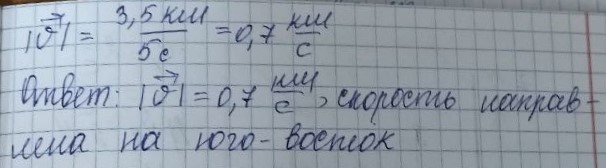 |v⃗| = 3,5 км / 5 с = 0,7 км/с
Ответ: |v⃗| = 0,7 км/с, скорость направ-
лена на юго-восток